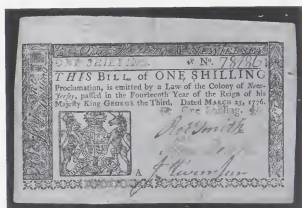 ONE SHILLING. Nº. 7876
THIS BILL of ONE SHILLING
Proclamation, is emitted by a Law of the Colony of New-
Jersey, passed in the Fourteenth Year of the Reign of his
Majesty King GEORGE the Third. Dated MARCH 25, 1776.
One Shilling.
Rob Smith
A